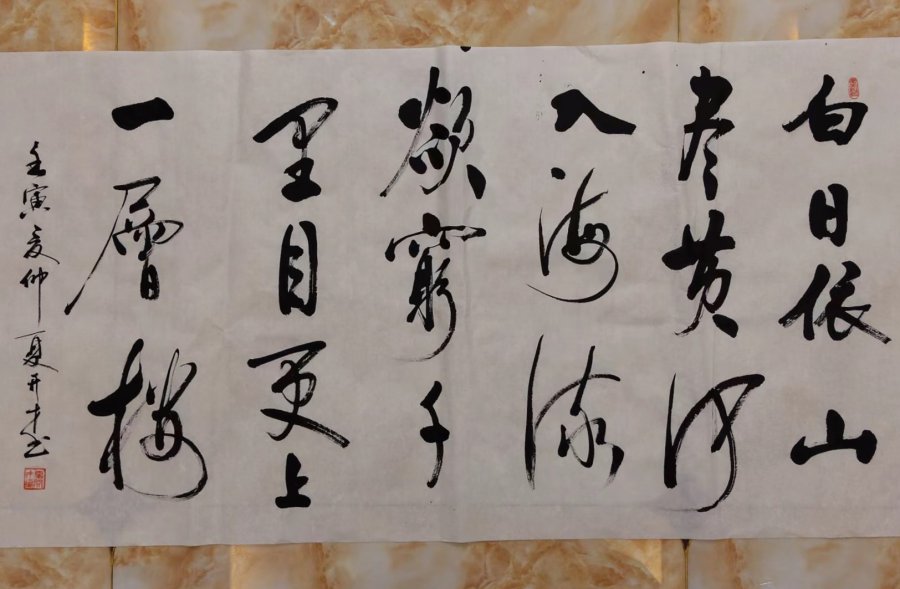 白日依山
尽黄河
入海流
欲窮千
里目更上
一層楼
壬寅夏仲夏开才书